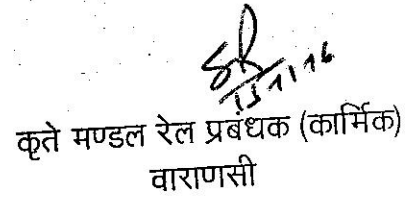 कृते मण्डल रेल प्रबंधक (कार्मिक)
वाराणसी